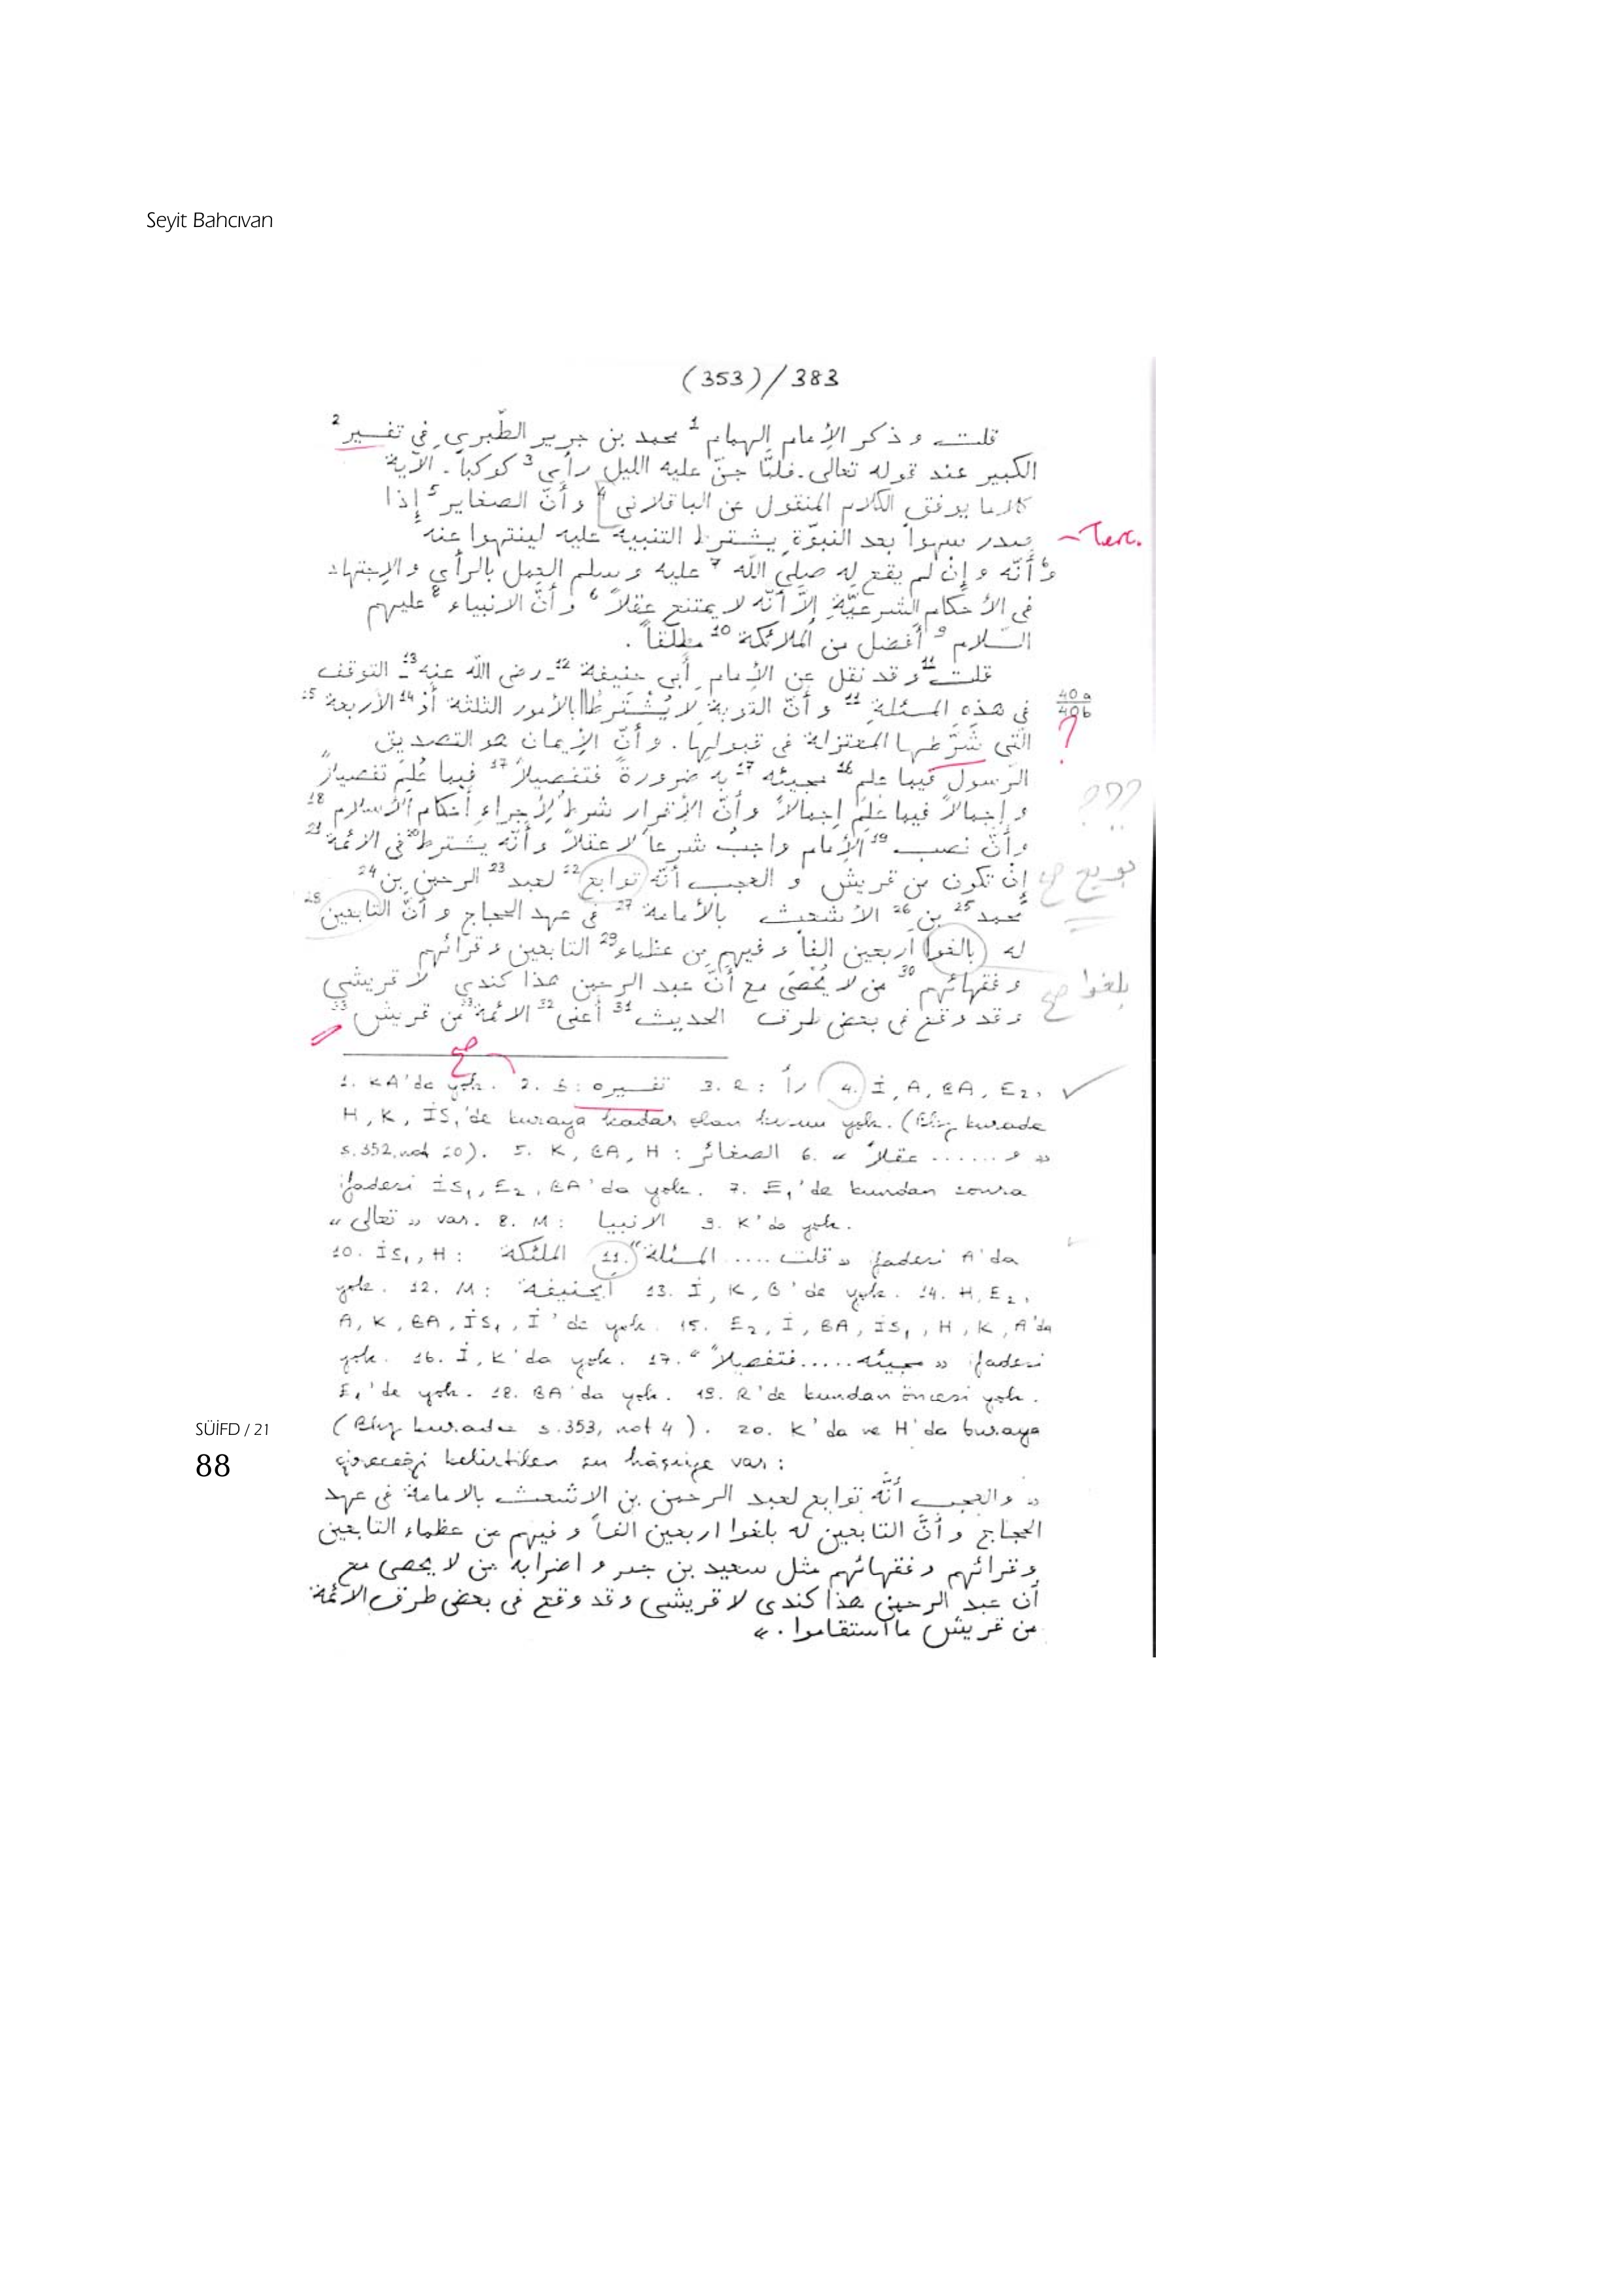 Seyit Bahcıvan
(353)/383
قلت وذكر الإمام الهمام 1 محمد بن جرير الطّبري في تفسير 2
الكبير عند قوله تعالى. فلمّا جنّ عليه الليل رأى 3 كوكباً. الآية
كلاما يوفق الكلام المنقول عن الباقلانى 4 وأنّ الصغاير 5 إذا
صدر سهواً بعد النبوّة يشترط التنبيه عليه لينتهوا عنه
~Terc.
وأنّه وإنْ لم يقع له صلى اللّه 7 عليه وسلم العمل بالرأي والإجتهاد
فى الأحكام الشرعيّة إلاّ أنّه لا يمتنع عقلاً 6 وأنّ الانبياء 8 عليهم
السّلام 9 أفضل من الملائكة 10 مطلقاً.
قلت 11 وقد نقل عن الإمام أبي حنيفة 12 ـ رضى اللّه عنه 13 ـ التوقف
فى هذه المسئلة 11 وأنّ التوبة لا يُشْتَرطُ || بالأمور الثلثة أو 14 الأربعة 15
40a
40b
?
الّتى شَرَّطها المعتزلة فى قبولها. وأنّ الإيمان هو التصديق
الرّسول فيما علم 16 مجيئه 17 به ضرورةً فتفصيلاً 17 فيما عُلِمَ تفصيلاً
???
وإجمالاً فيما عُلِمَ إجمالاً وأنّ الإقرار شرطٌ لإجراءِ أحكام الأسلام 18
وأنّ نصب 19 الإمام واجبٌ شرعاً لا عقلاً وأنّه يشترط 20 فى الائمّة 21
إنْ تكون من قريش والعجب أنّه توابع 22 لعبد 23 الرحمن بن 24
بويع صح
محمد 25 بن 26 الأشعث بالأمامة 27 فى عهد الحجاج وأنّ التابعين 28
له (بالغوا) أربعين الفاً وفيهم من عظماء 29 التابعين وقرائهم
وفقهائهم 30 من لا يُحْصَى مع أنّ عبد الرحمن هذا كندي لا قريشي
بلغوا صح
وقد وقع فى بعض طرق الحديث 31 أعنى 32 الائمّة 33 من قريش 33
صح
1. KA'da yok. 2. S: تفسيره 3. R: رأ 4. İ, A, BA, E2,
H, K, İS1'de buraya kadar olan kısım yok. (Bkz burada
s.352, not 20). 5. K, BA, H: الصغائر 6. « و ...... عقلاً »
ifadesi İS1, E2, BA'da yok. 7. E1'de bundan sonra
« تعالى » var. 8. M: الانبيا 9. K'da yok.
10. İS1, H: الملئكة 11. « قلت .... المسئلة » ifadesi A'da
yok. 12. M: ابحنيفة 13. İ, K, B'de yok. 14. H, E2,
A, K, BA, İS1, İ'de yok. 15. E2, İ, BA, İS1, H, K, A'da
yok. 16. İ, K'da yok. 17. « مجيئه.....فتفصيلاً » ifadesi
E1'de yok. 18. BA'da yok. 19. R'de bundan öncesi yok.
(Bkz burada s.353, not 4). 20. K'da ve H'da buraya
gireceği belirtilen şu hâşiye var:
« والعجب أنَّه توابع لعبد الرحمن بن الاشعث بالامامة فى عهد
الحجاج وأنَّ التابعين له بلغوا اربعين الفاً وفيهم من عظماء التابعين
وقرائهم وفقهائهم مثل سعيد بن جبير واضرابه من لا يحصى مع
أن عبد الرحمن هذا كندى لا قريشى وقد وقع فى بعض طرق الائمّة
من قريش ما استقاموا. »
SÜİFD / 21
88